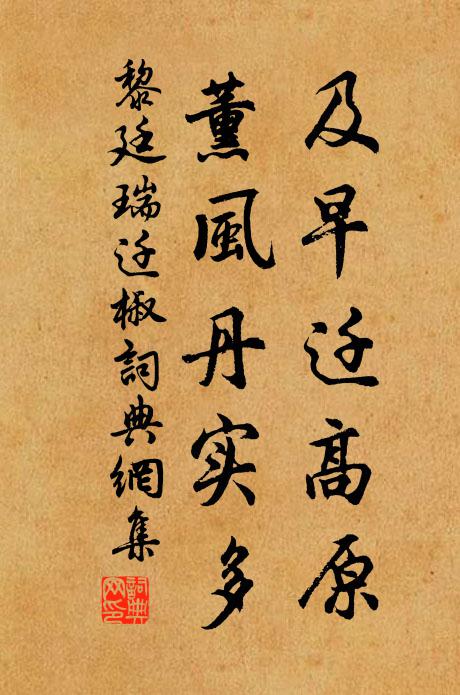 及早迁高原
薰風丹实多
黎廷瑞迁椒詞典網集
詞典网印